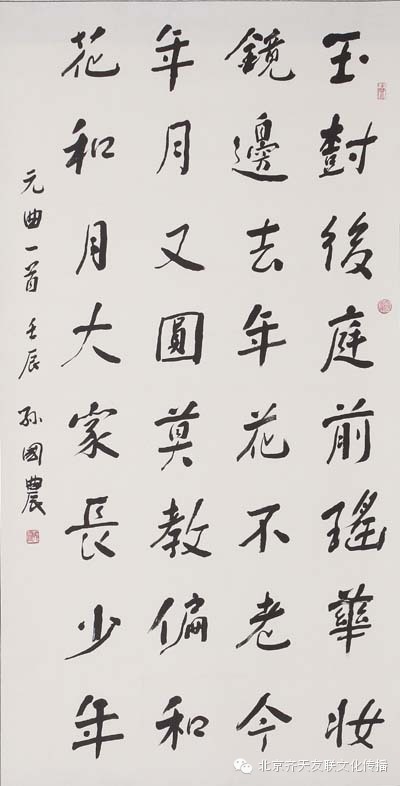 玉樹後庭前瑤華妝
鏡邊去年花不老今
年月又圓莫教偏和
花和月大家長少年
元曲一首 壬辰 孫國農
北京齐天友联文化传播